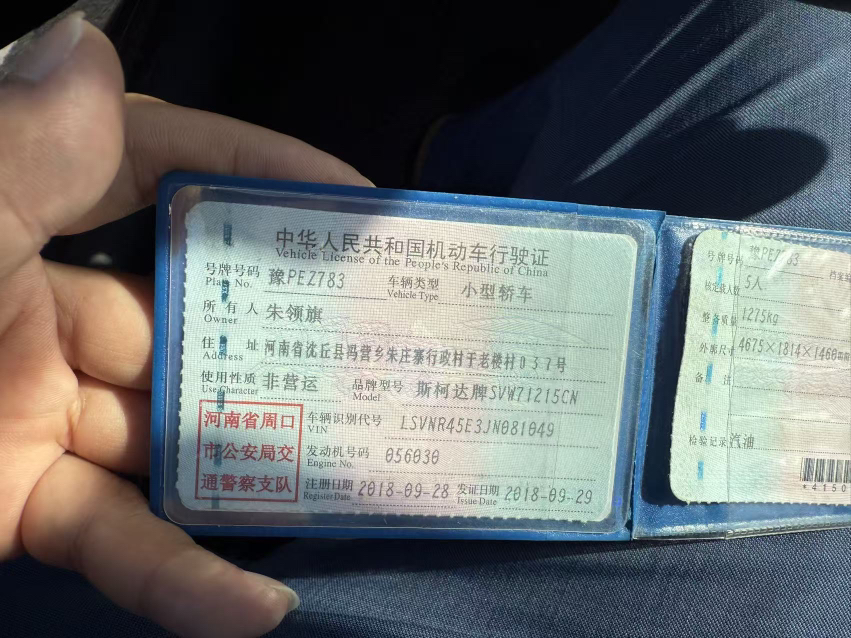 中华人民共和国机动车行驶证
Vehicle License of the People's Republic of China
号牌号码 豫PEZ783 车辆类型 小型轿车
Plate No. Vehicle Type
所有人 朱领旗
Owner
住址 河南省沈丘县冯营乡朱庄寨行政村于老楼村037号
Address
使用性质 非营运 品牌型号 斯柯达牌SVW71215CN
Use Character Model
河南省周口
市公安局交
通警察支队
车辆识别代号 LSVNR45E3JN081049
VIN
发动机号码 056030
Engine No.
注册日期 2018-09-28 发证日期 2018-09-29
Register Date Issue Date
号牌号码 豫PEZ783
核定载人数 5人
整备质量 1275kg
外廓尺寸 4675×1814×1460mm
备注
检验记录 汽油
*4150